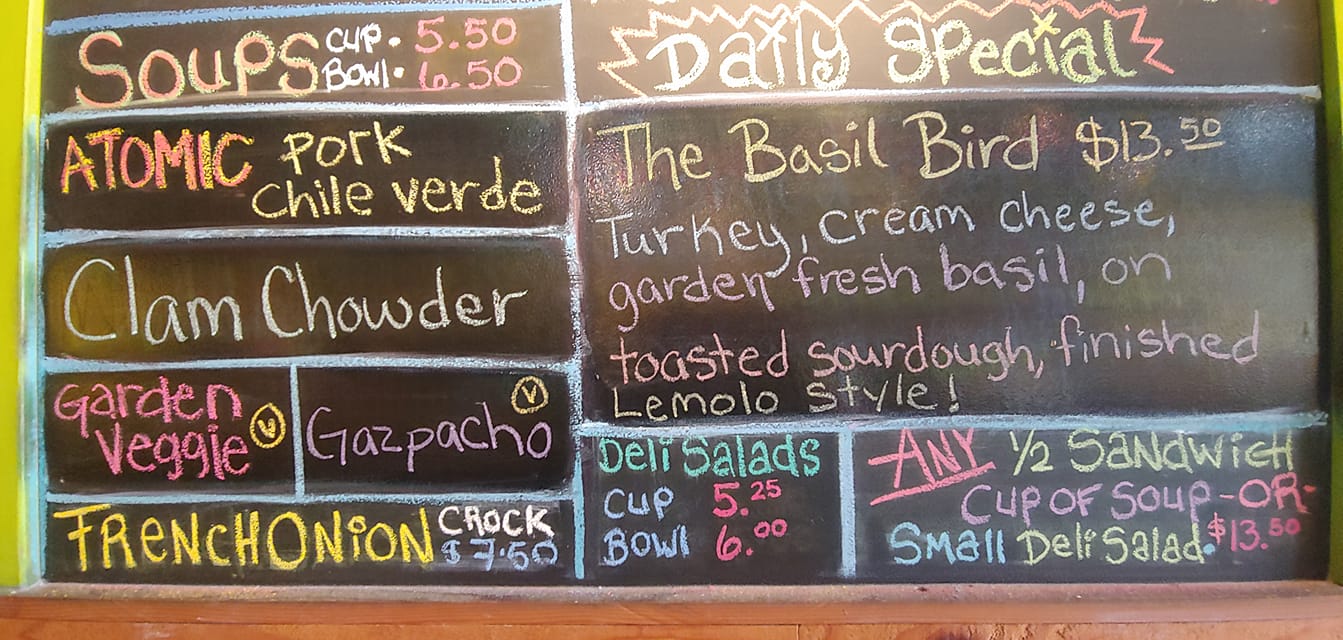 Soups
CUP. 5.50
BOWl. 6.50
ATOMIC Pork
Chile verde
Clam Chowder
Garden
Veggie V
Gazpacho V
FRENCH ONiON
CROCK
$7.50
Daily Special
The Basil Bird $13.50
Turkey, cream cheese,
garden fresh basil, on
toasted sourdough, finished
Lemolo Style!
Deli Salads
CUP 5.25
BOWl 6.00
ANY 1/2 SANDWICH
CUP OF SOUP -OR-
Small Deli Salad. $13.50